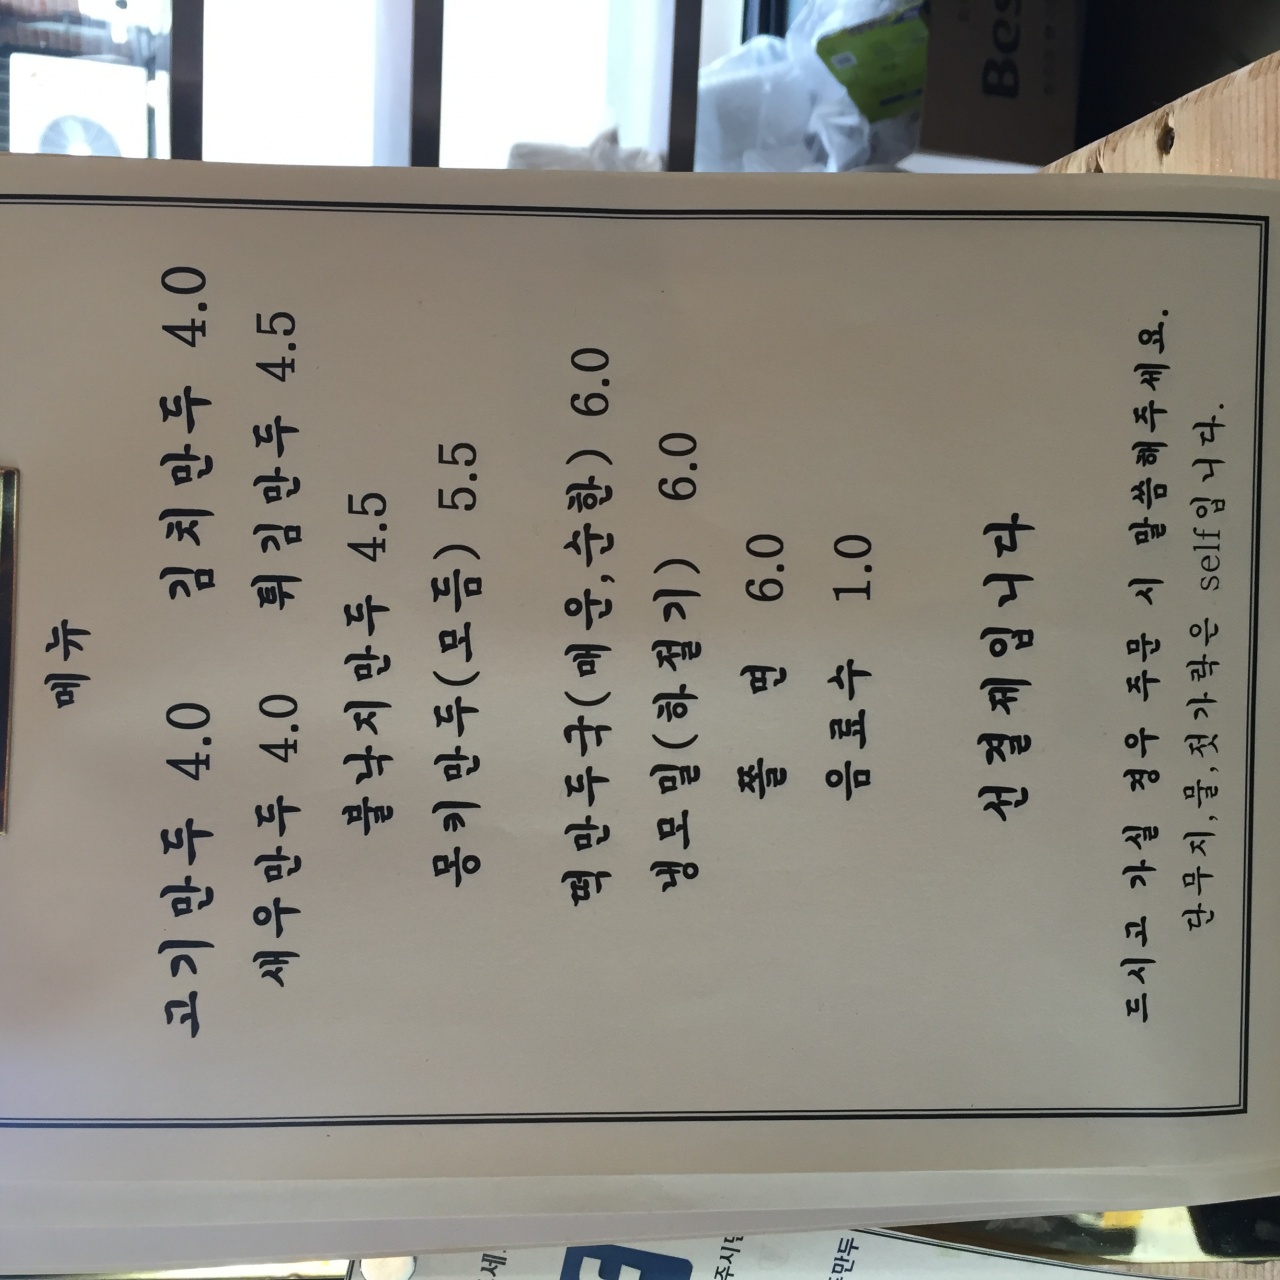 메뉴
고기만두 4.0 김치만두 4.0
새우만두 4.0 튀김만두 4.5
불낙지만두 4.5
몽키만두(모듬) 5.5
떡만두국(매운,순한) 6.0
냉모밀(하절기) 6.0
쫄 면 6.0
음료수 1.0
선결제입니다
드시고 가실 경우 주문 시 말씀해주세요.
단무지,물,젓가락은 self입니다.
Bes